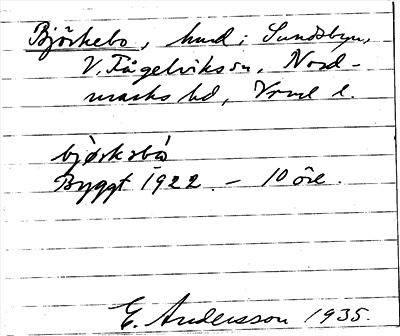 Björkebo, hmd i Sundsbyn,
V. Fågelviks sn, Nord-
marks hd, Vrml l.
bjørksbó
Byggt 1922. – 10 öre.
E. Andersson 1935.